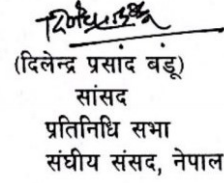 (दिलेन्द्र प्रसाद बडू)
सांसद
प्रतिनिधि सभा
संघीय संसद, नेपाल